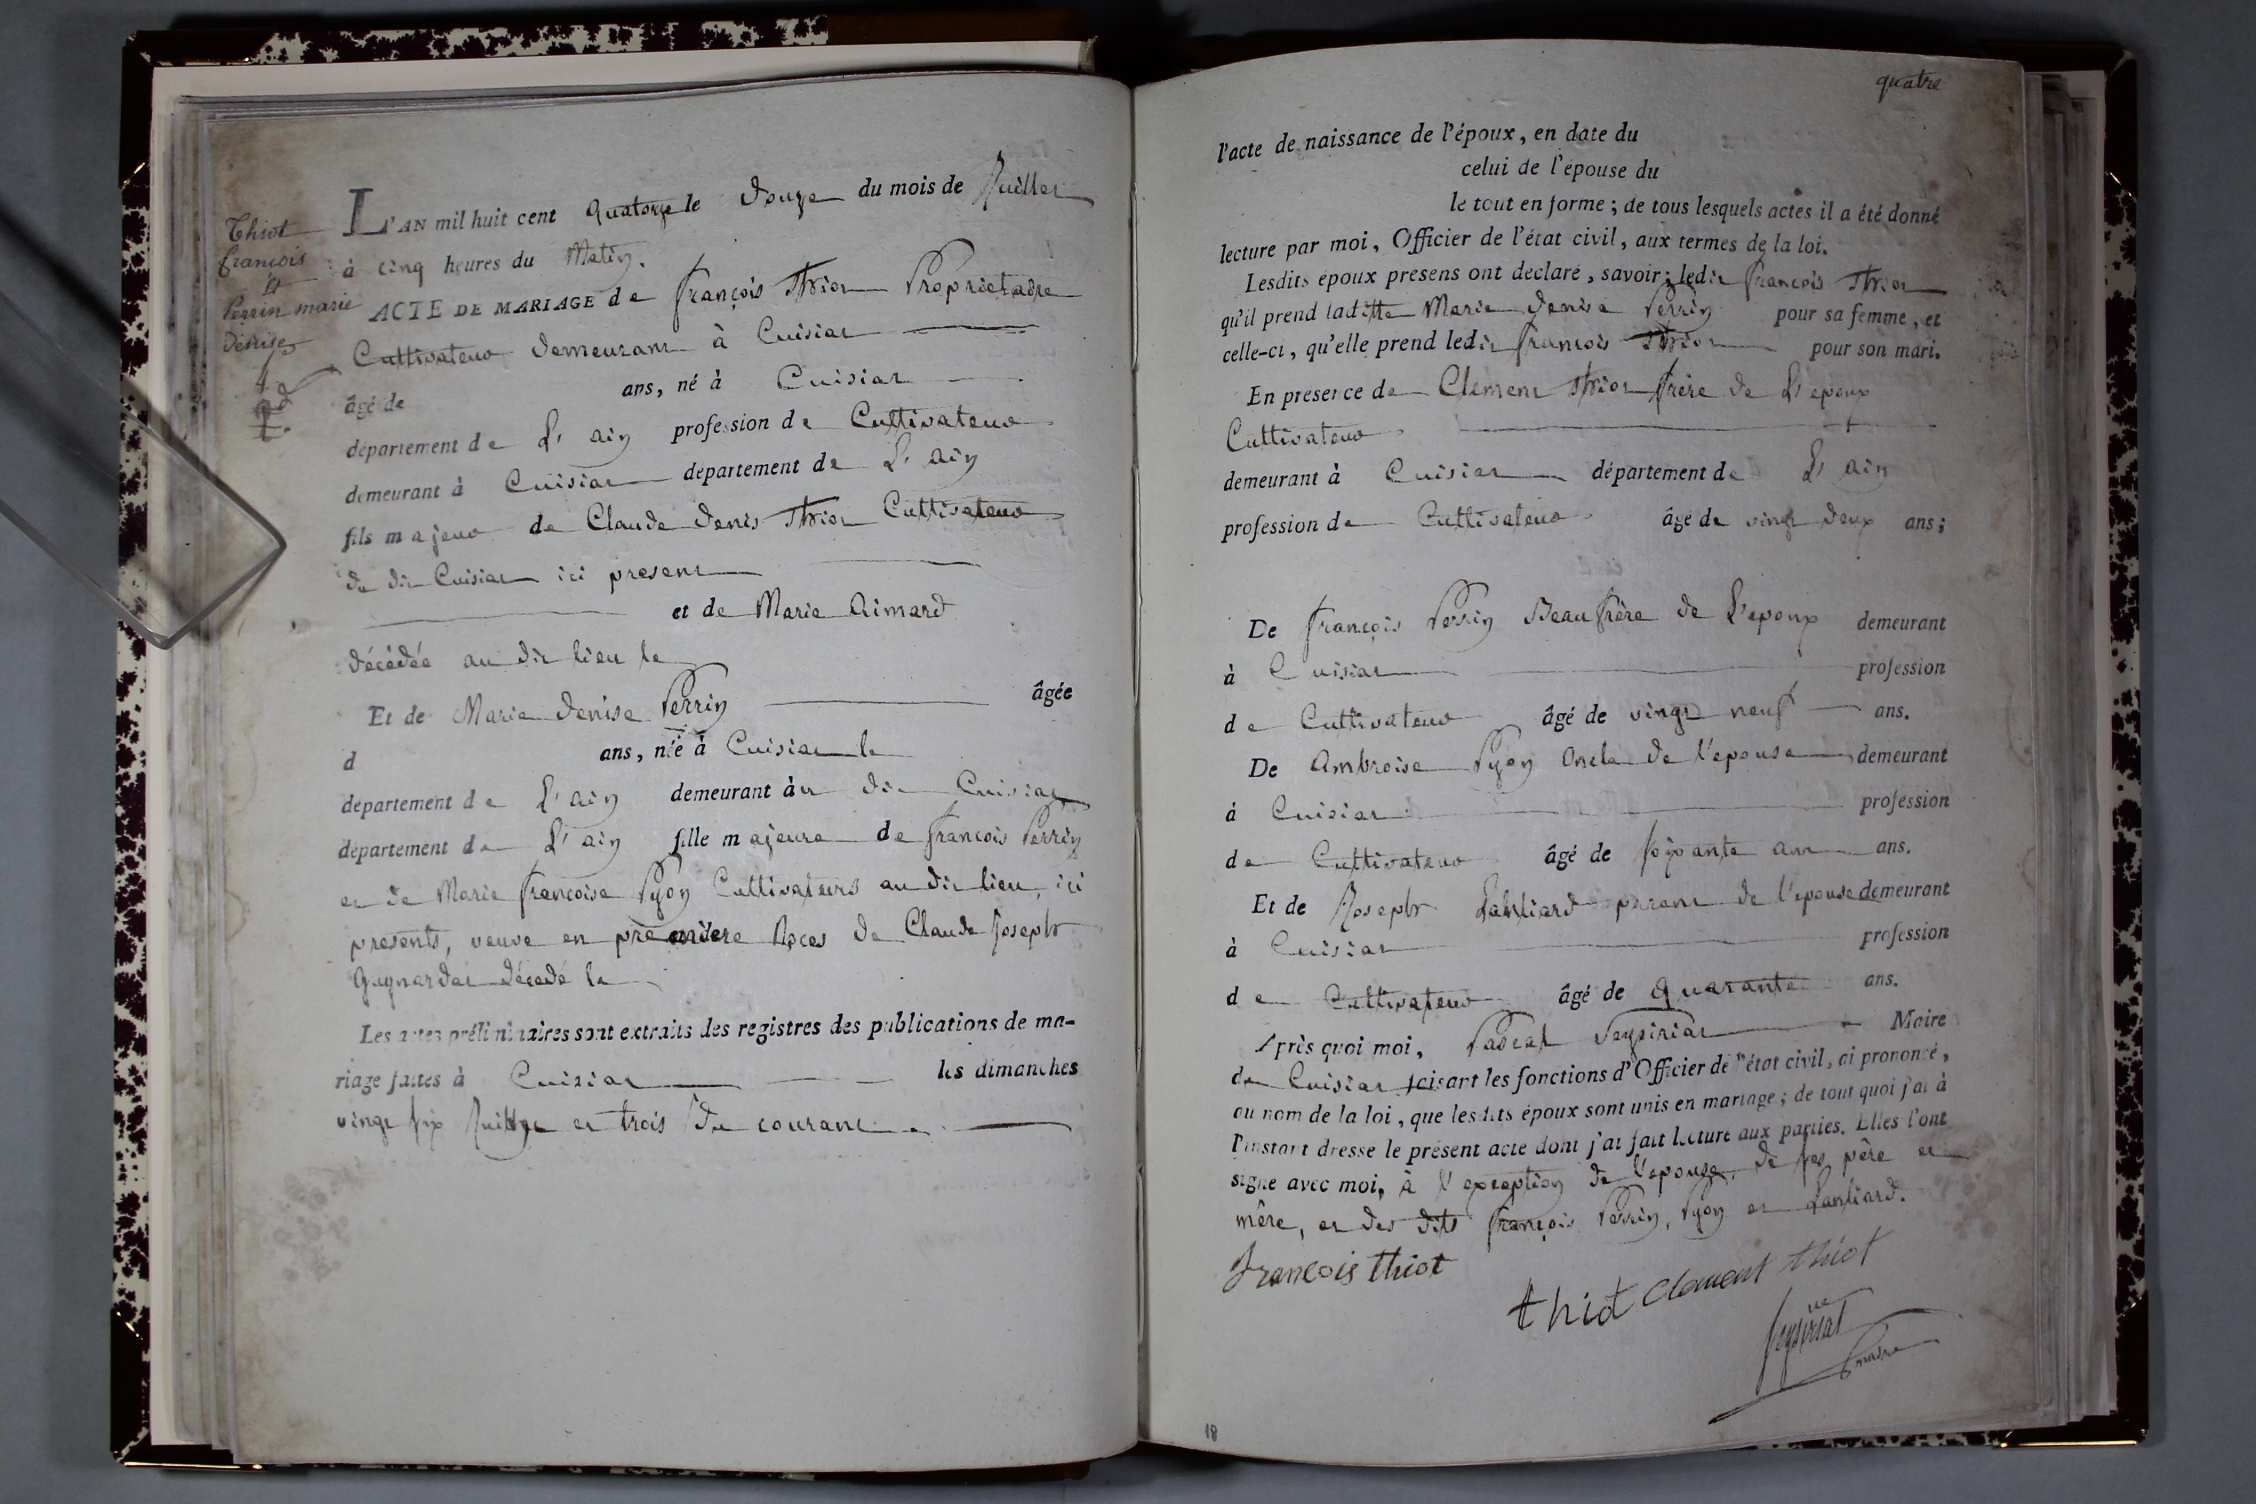 Thiot
françois
et
Perrin marie
Denise
L'AN mil huit cent quatorze le douze du mois de Juillet
à cinq heures du Matin.
ACTE DE MARIAGE de françois Thiot Proprietaire
Cultivateur demeurant à Cuisiat
âgé de ans, né à Cuisiat
département de L'ain profession de Cultivateur
demeurant à Cuisiat département de L'ain
fils majeur de Claude denis Thiot Cultivateur
du dit Cuisiat ici present
et de Marie Aimard
décédée au dit lieu le
Et de Marie denise Perrin âgée
d ans, née à Cuisiat le
département de L'ain demeurant àu dit Cuisiat
département de L'ain fille majeure de françois Perrin
et de Marie françoise Pyon Cultivateurs au dit lieu, ici
presents, veuve en premiere Noces de Claude Joseph
décedé le
Les actes préliminaires sont extraits des registres des publications de ma-
riage faites à Cuisiat les dimanches
vingt six et trois du courant.
quatre
l'acte de naissance de l'époux, en date du
celui de l'épouse du
le tout en forme; de tous lesquels actes il a été donné
lecture par moi, Officier de l'état civil, aux termes de la loi.
Lesdits époux présens ont déclaré, savoir; ledit françois Thiot
qu'il prend laditte Marie denise Perrin pour sa femme, et
celle-ci, qu'elle prend ledit françois Thiot pour son mari.
En présence de Clement Thiot frère de L'epoux
Cultivateur
demeurant à Cuisiat département de L'ain
profession de Cultivateur âgé de vingt deux ans;
De françois Perrin Beaufrère de L'epoux demeurant
à Cuisiat profession
de Cultivateur âgé de vingt neuf ans.
De Ambroise Pyon Oncle de l'epouse demeurant
à Cuisiat profession
de Cultivateur âgé de soixante ans.
Et de Joseph parent de l'epouse demeurant
à Cuisiat profession
de Cultivateur âgé de quarante ans.
Après quoi moi, Pascal Maire
de Cuisiat faisant les fonctions d'Officier de l'état civil, ai prononcé,
au nom de la loi, que lesdits époux sont unis en mariage; de tout quoi j'ai à
l'instant dressé le présent acte dont j'ai fait lecture aux parties. Elles l'ont
signé avec moi, à l'exception de l'epouse, de ses père et
mère, et des dits françois Perrin, Pyon et
françois thiot
thiot Clement thiot
maire
18